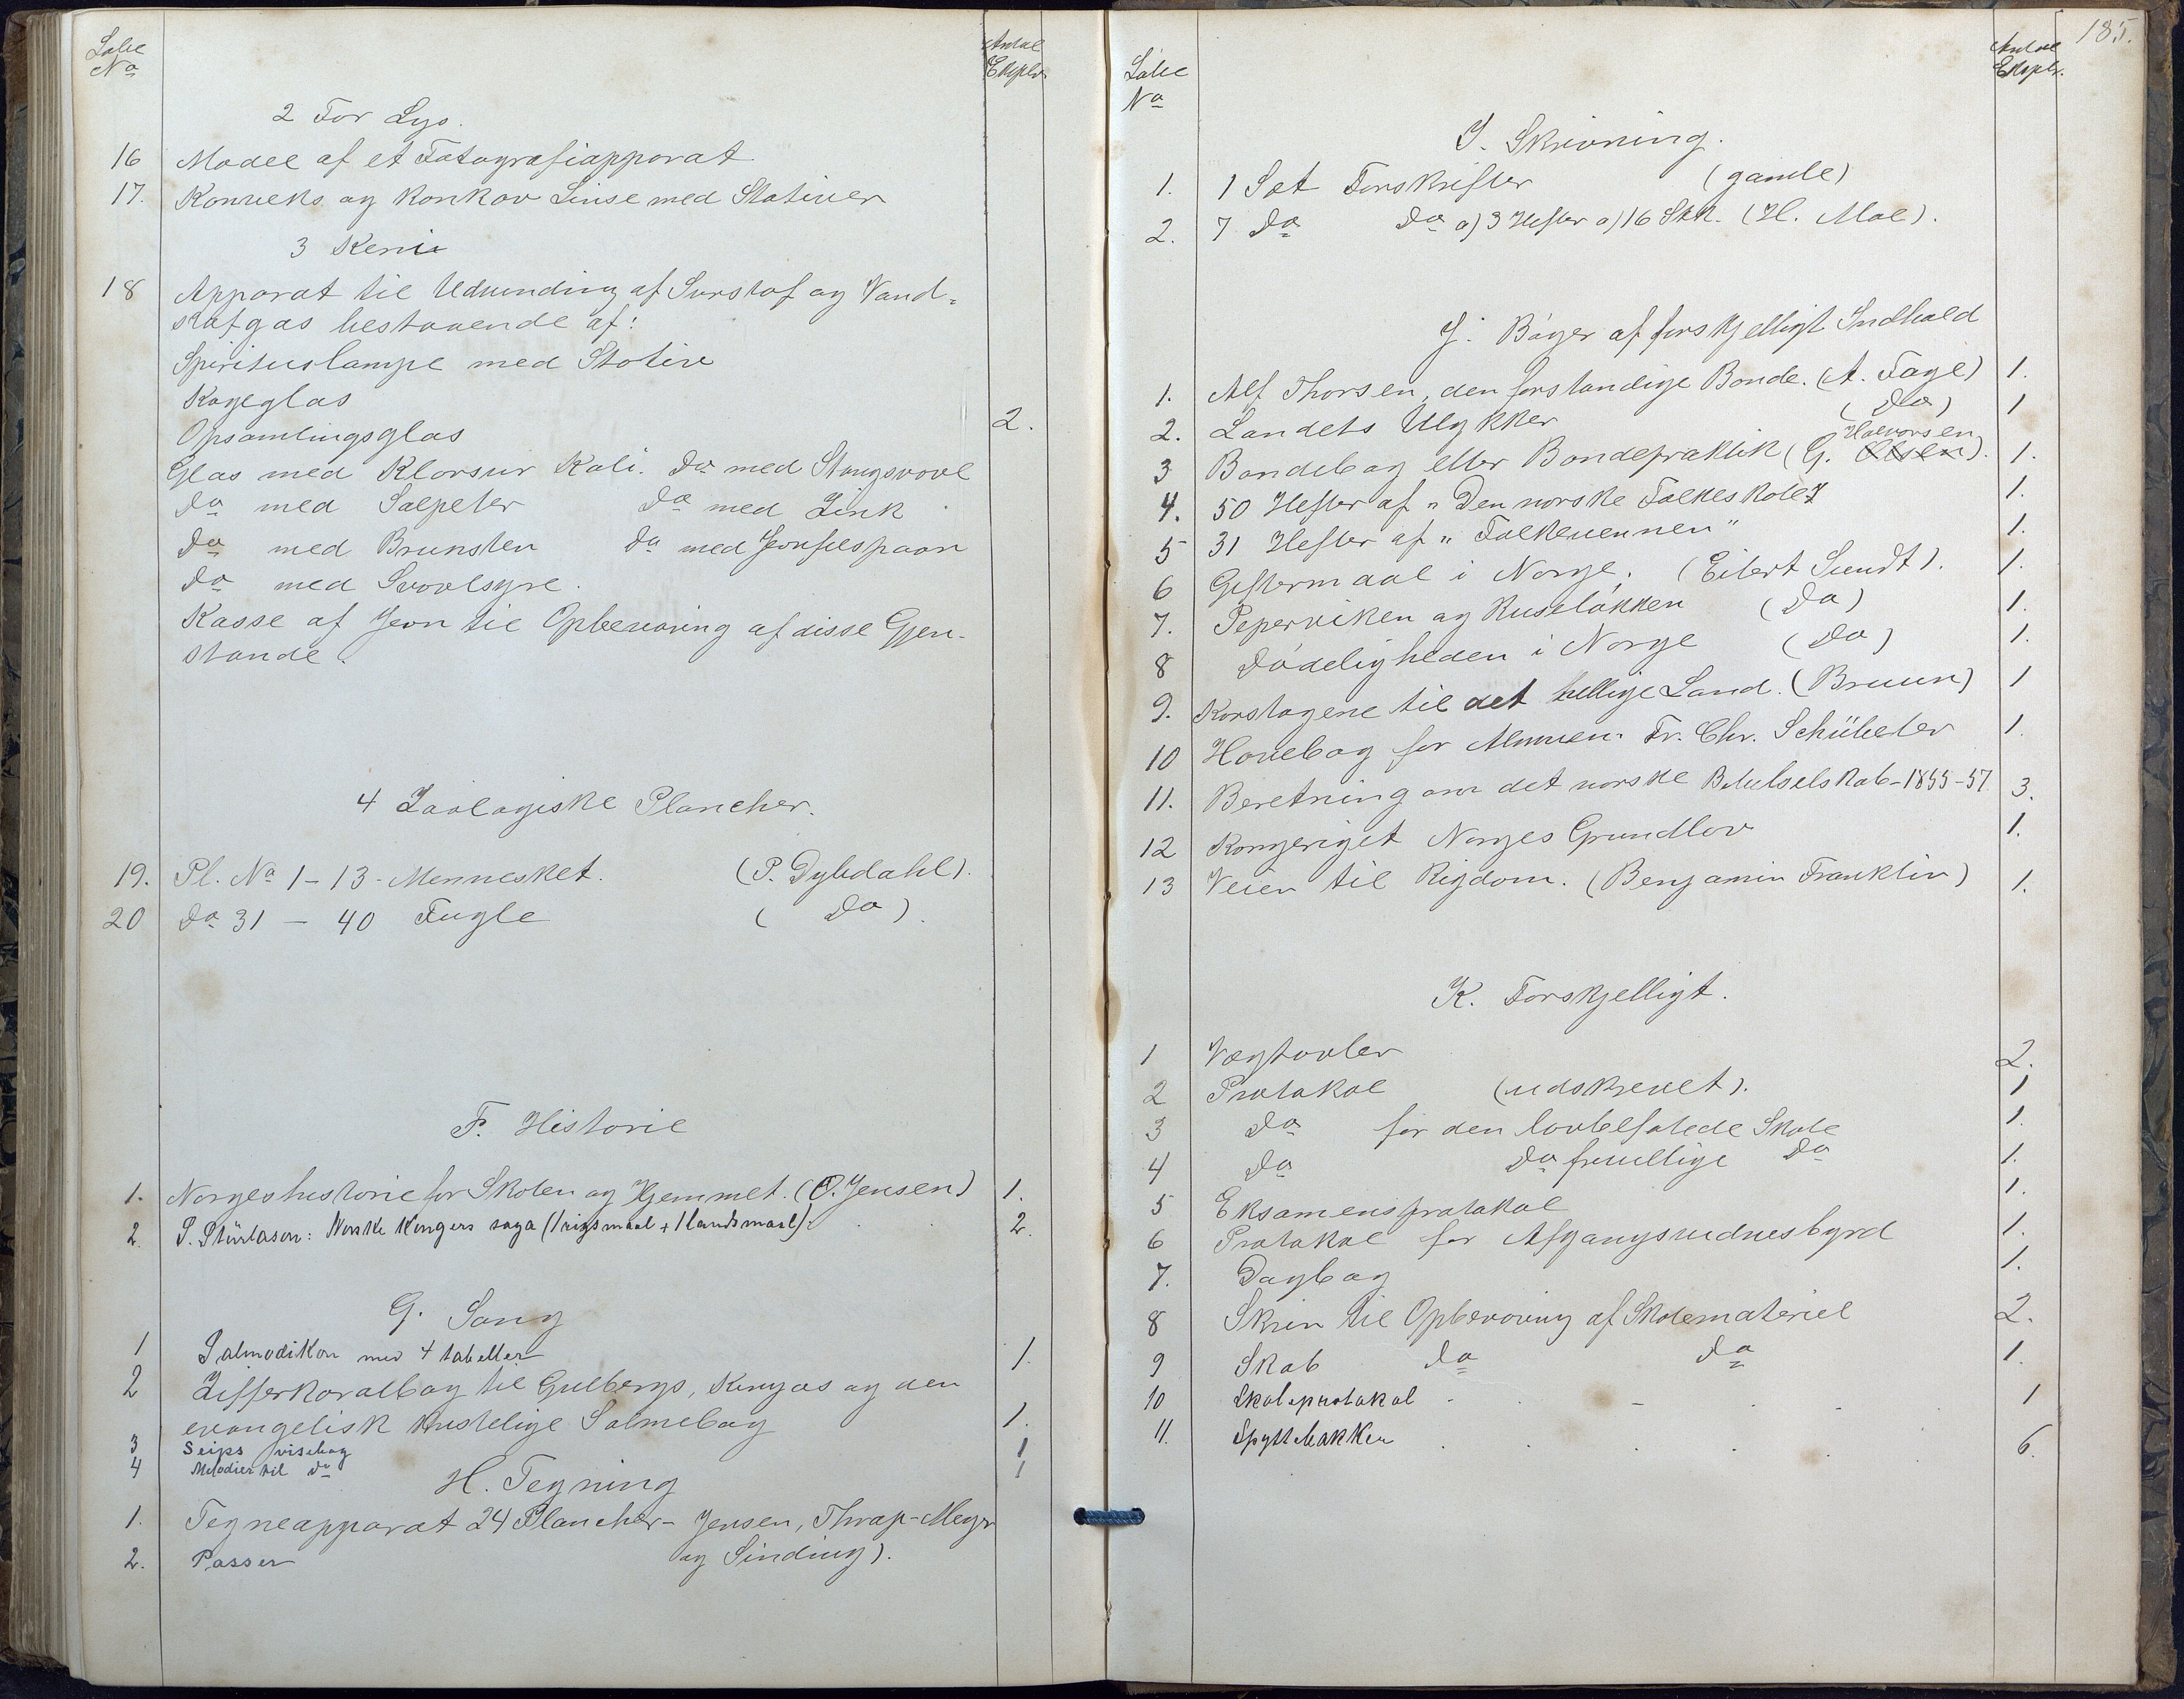 Løbe No
Antal Expls
2 For Lys.
16 Model af et Fotografiapparat
17. Konveks og konkav Linse med Stativer
3 Kemi
18 Apparat til Udvinding af Surstof og Vand=
stofgas bestaaende af:
Spirituslampe med Stativ
Kogeglas
Opsamlingsglas 2.
Glas med Klorsur Kali. Do med Stangsvovl
Do med Salpeter Do med Zink
Do med Brunsten Do med Jernfilspaan
Do med Svovlsyre.
Kasse af Jern til Opbevaring af disse Gjen-
stande.
4 Zoologiske Plancher.
19. Pl. No 1-13- Mennesket. (P. Dybdahl).
20 Do 31 - 40 Fugle ( Do ).
F. Historie
1. Norgeshistorie for Skolen og Hjemmet. (O. Jensen) 1.
2. S. Stürlason: Norske Kongers saga (1 rigsmaal + 1 landsmaal). 2.
G. Sang
1 Salmodikon med 4 tabeller 1.
2 Zifferkoralbog til Gulbergs, Kingos og den
evangelisk kristelige Salmebog 1.
3 Seips visebog 1
4 Melodier til do 1
H. Tegning
1. Tegneapparat 24 Plancher- Jensen, Thrap-Meyer
og Sinding).
2. Passer
185.
Løbe No
Antal Expls.
I. Skrivning.
1. 1 Sæt Forskrifter (gamle)
2. 7 Do Do a) 3 Hefter a) 16 Skr. (H. Moe).
J. Bøger af forskjelligt Indhold
1. Alf Thorsen, den forstandige Bonde. (A. Faye) 1.
2. Landets Ulykker (Do) 1
Halvorsen
3 Bondebog eller Bondepraktik (G. Olsen). 1.
4. 50 Hefter af "Den norske Folkeskole" 1.
5 31 Hefter af "Folkevennen" 1.
6 Giftermaal i Norge. (Eilert Sundt). 1.
7. Pipervíken og Ruseløkken (Do) 1.
8 Dødeligheden i Norge (Do) 1.
9. Korstogene til det hellige Land. (Bruun) 1
10 Havebog for Almuen. Fr. Chr. Schübeler 1.
11. Beretning om det norske Bibelselskab-1855-57 3.
12 Kongeriget Norges Grundlov 1.
13 Veien til Rigdom. (Benjamin Franklin) 1.
K. Forskjelligt.
1 Vægtavler 2.
2 Protokol (udskrevet). 1
3 Do for den lovbefalede Skole 1.
4 Do Do frivillige Do 1.
5 Eksamensprotokol 1.
6 Protokol for Afgangsvidnesbyrd 1.
7. Dagbog 1.
8 Skrin til Opbevaring af Skolemateriel 2.
9 Skab Do Do 1.
10 Skoleprotokol 1
11. Spyttebakker 6.